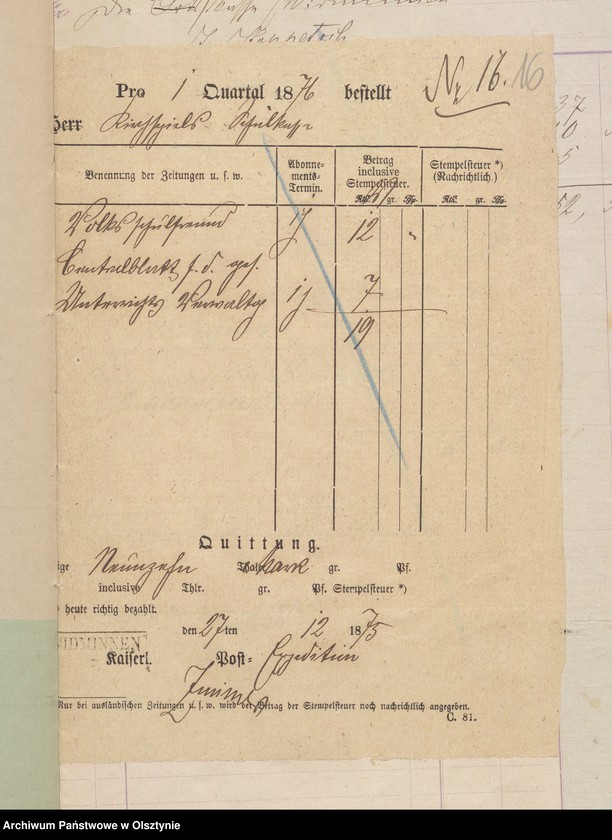 Die Schulkasse Widminnen
Nr 16. 16
Pro 1 Quartal 1876 bestellt
Herr Kirchspiels Schulkasse
Benennung der Zeitungen u. s. w.
Abonne-
ments-
Termin.
Betrag
inclusive
Stempelsteuer.
Rtl. gr. Pfg.
Stempelsteuer *)
(Nachrichtlich.)
Rtl. gr. Pfg.
Volksschulfreund 1j 12 "
Centralblatt f. d. ges.
Unterrichts Verwaltg 1j 7
19
Quittung.
ige Neunzehn Thaler Mark gr. Pf.
inclusive Thlr. gr. Pf. Stempelsteuer *)
heute richtig bezahlt.
den 27ten 12 1875
WIDMINNEN
Kaiserl. Post- Expedition
Nur bei ausländischen Zeitungen u. s. w. wird der Betrag der Stempelsteuer noch nachrichtlich angegeben.
C. 81.
37
52,
Archiwum Państwowe w Olsztynie